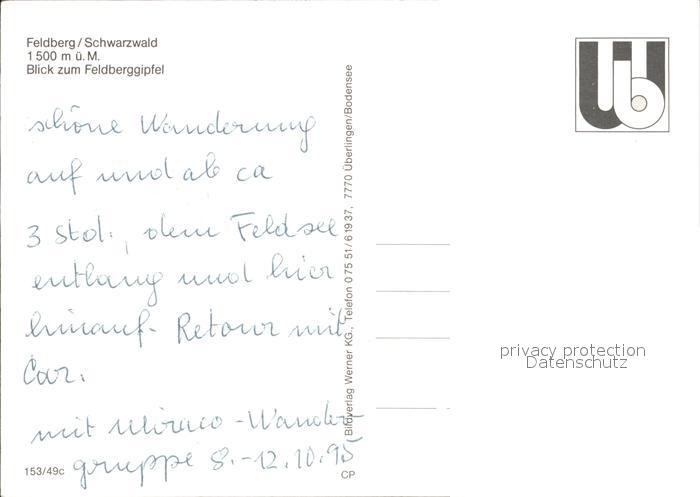 Feldberg/Schwarzwald
1500 m ü. M.
Blick zum Feldberggipfel
schöne Wanderung
auf und ab ca
3 Std., dem Feldsee
entlang und hier
hinauf. Retour mit
Car.
mit -Wander-
gruppe 8.-12.10.95
153/49c
Bildverlag Werner KG., Telefon 0 75 51/6 19 37, 7770 Überlingen/Bodensee
CP
privacy protection
Datenschutz